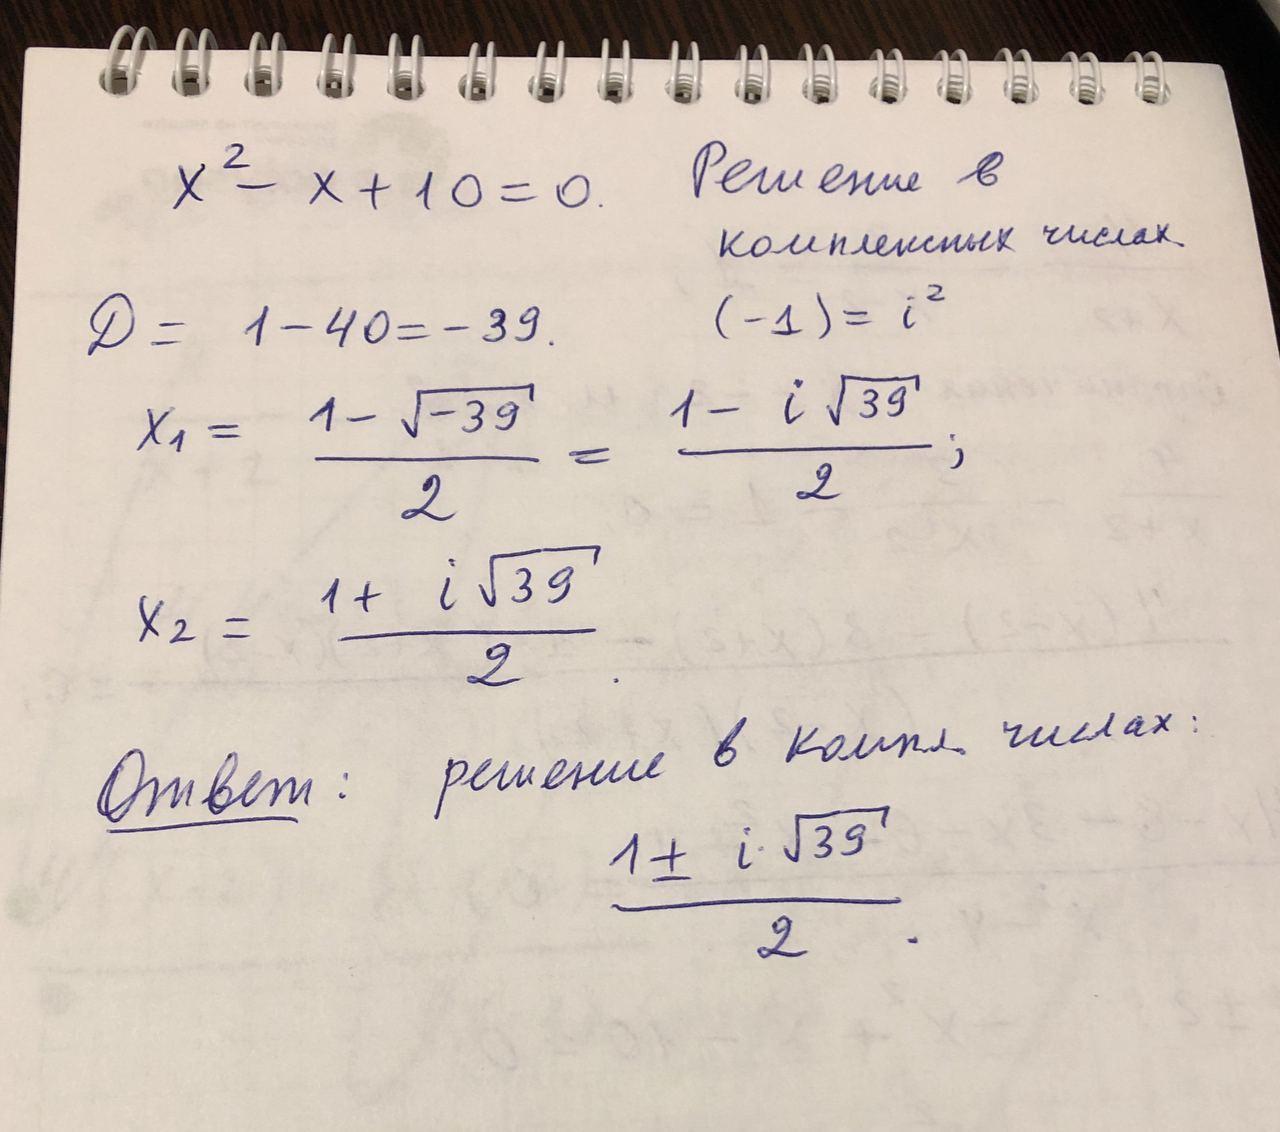 x² - x + 10 = 0. Решение в
комплексных числах
D = 1 - 40 = -39. (-1) = i²
x₁ = (1 - √-39)/2 = (1 - i√39)/2;
x₂ = (1 + i√39)/2.
Ответ: решение в компл. числах:
(1 ± i·√39)/2.